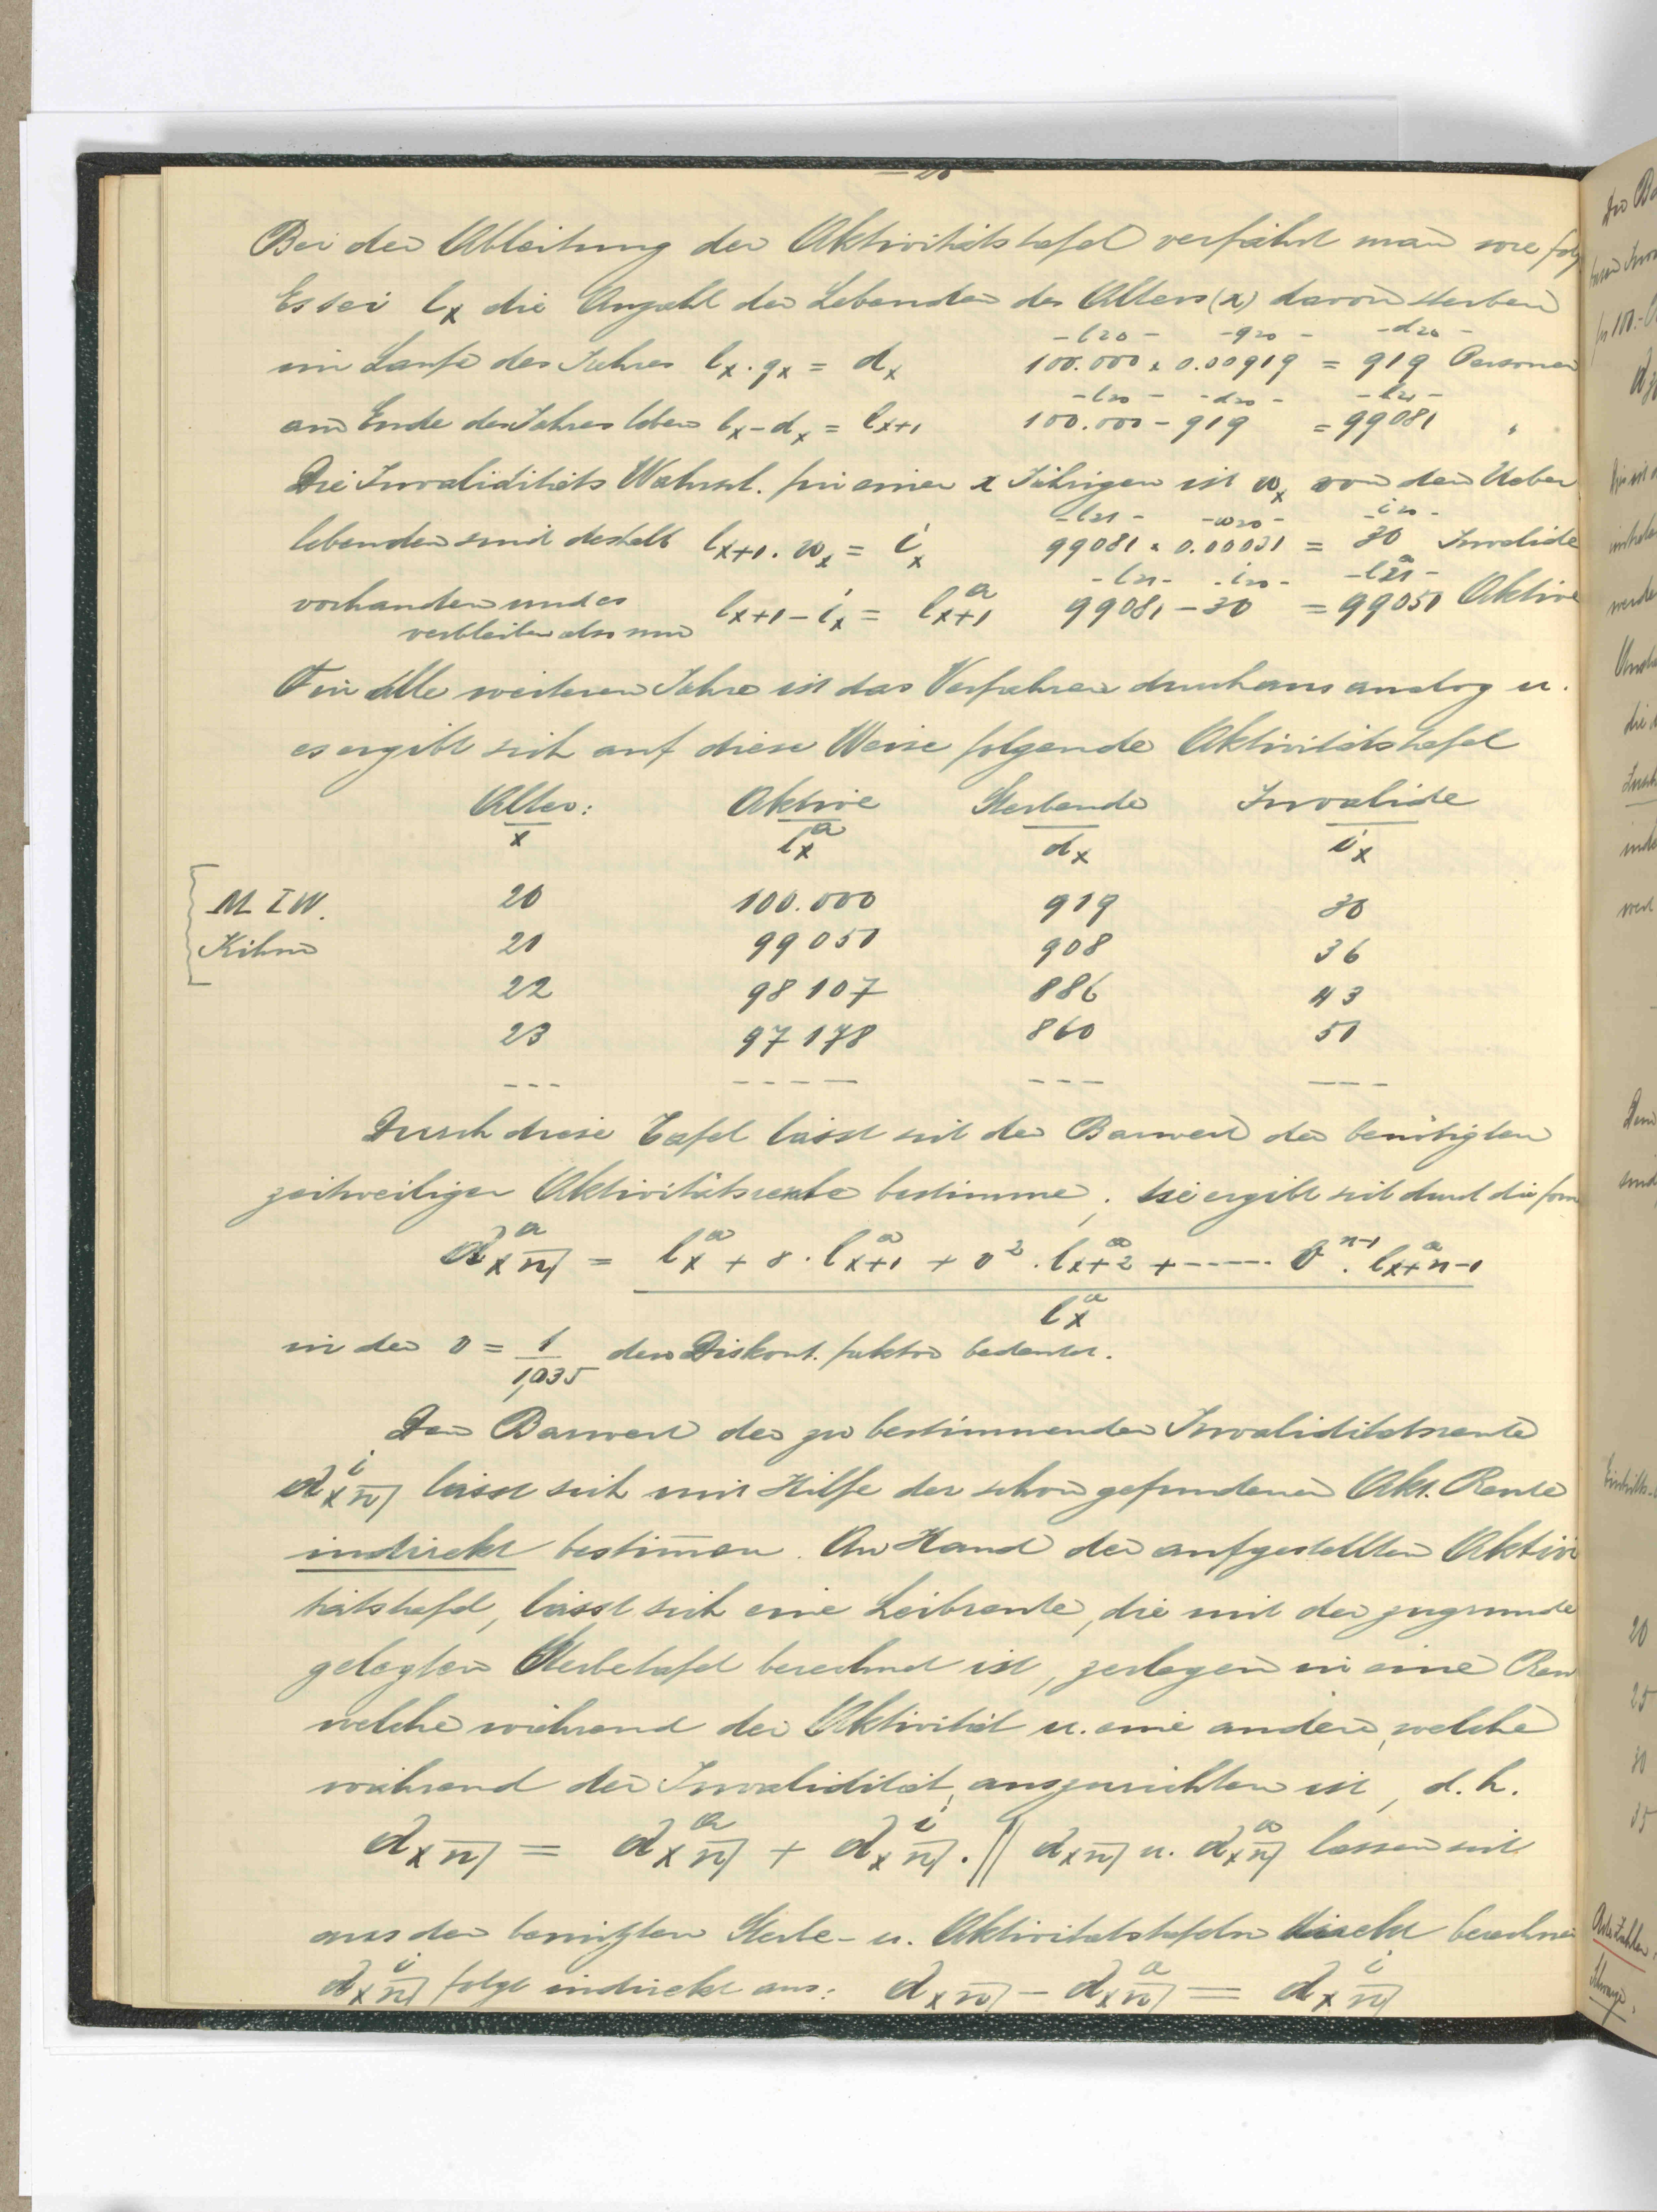 Bei der Ableitung der Aktivitätstafel verfährt man wie folg
Es sei lx die Anzahl der Lebenden des Alters (x) davon sterben
-l20- -q20- -d20-
im Laufe des Jahres lx . qx = dx 100.000 x 0.00919 = 919 Personen
-l20- -d20- -l21-
am Ende des Jahres leben lx - dx = lx+1 100.000 - 919 = 99081 "
Die Invaliditäts Wahrsch. für einen x Jährigen ist wx von den Ueber
-l21- -w20- -i20-
lebenden sind deshalb lx+1 . wx = ix 99081 x 0.00031 = 30 Invalide
-l21- -i20- -l21a-
vorhanden und es lx+1 - ix = lax+1 99081 - 30 = 99051 Aktive
verbleiben also nur
Für alle weiteren Jahre ist das Verfahren durchaus analog u.
es ergibt sich auf diese Weise folgende Aktivitätstafel
Alter: Aktive Sterbende Invalide
x lax dx ix
M I W. 20 100.000 919 30
Kihm 21 99051 908 36
22 98107 886 43
23 97178 860 51
--- ----- --- ---
Durch diese Tafel lässt sich der Barwert der benötigten
zeitweiligen Aktivitätsrente bestimme, sie ergibt sich durch die form
aax n̅| = lax + v . lax+1 + v² . lax+2 + ------ vn-1 . lax+n-1
lax
in der v = 1/1,035 den Diskont. faktor bedeutet.
Den Barwert der zu bestimmenden Invaliditätsrente
aix n̅| lässt sich mit Hilfe der schon gefundenen Akt. Rente
indirekt bestim̅en. An Hand der aufgestellten Aktivi
tätstafel, lässt sich eine Leibrente, die mit der zugrunde
gelegten Sterbetafel berechnet ist, zerlegen in eine Ren
welche während der Aktivität u. eine andere, welche
während der Invalidität, auszurichten ist, d. h.
ax n̅| = aax n̅| + aix n̅| . || ax n̅| u. aax n̅| lassen sich
aus den benützten Sterbe- u. Aktivitätstafeln direkt berechnen
aix n̅| folgt indirekt aus: ax n̅| - aax n̅| = aix n̅|
20
25
30
35